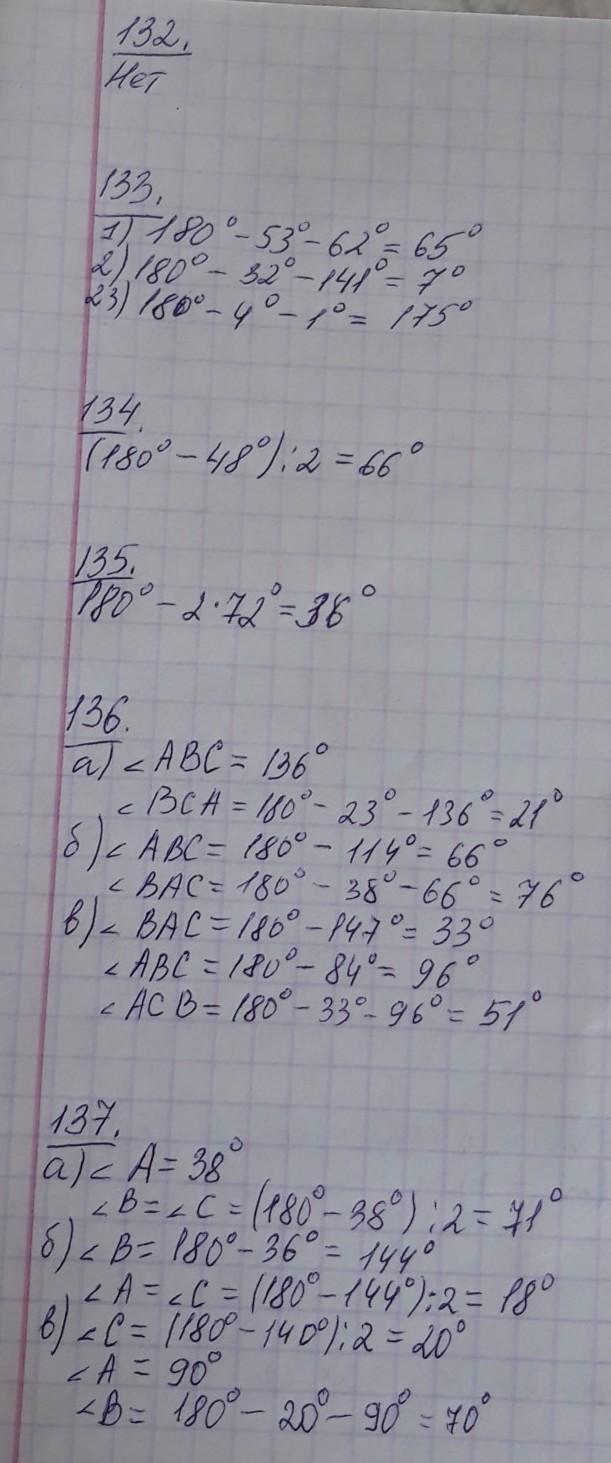 132.
Нет
133.
1) 180° - 53° - 62° = 65°
2) 180° - 32° - 141° = 7°
23) 180° - 4° - 1° = 175°
134.
(180° - 48°) : 2 = 66°
135.
180° - 2 · 72° = 36°
136.
а) ∠ ABC = 136°
∠ BCA = 180° - 23° - 136° = 21°
б) ∠ ABC = 180° - 114° = 66°
∠ BAC = 180° - 38° - 66° = 76°
в) ∠ BAC = 180° - 147° = 33°
∠ ABC = 180° - 84° = 96°
∠ ACB = 180° - 33° - 96° = 51°
137.
а) ∠ A = 38°
∠B = ∠ C = (180° - 38°) : 2 = 71°
б) ∠ B = 180° - 36° = 144°
∠ A = ∠C = (180° - 144°) : 2 = 18°
в) ∠C = (180° - 140°) : 2 = 20°
∠ A = 90°
∠B = 180° - 20° - 90° = 70°